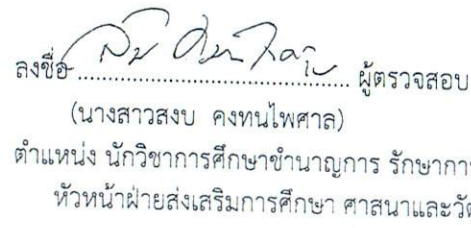 ลงชื่อ.......................................... ผู้ตรวจสอบ
(นางสาวสงบ คงทนไพศาล)
ตำแหน่ง นักวิชาการศึกษาชำนาญการ รักษากา
หัวหน้าฝ่ายส่งเสริมการศึกษา ศาสนาและวัต